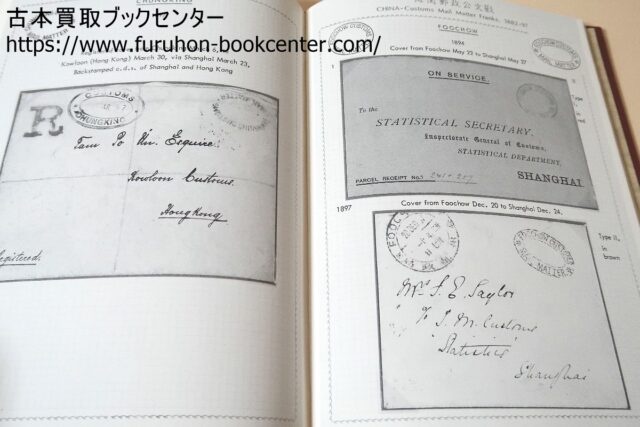 古本買取ブックセンター
https://www.furuhon-bookcenter.com/
CHUNGKING
Kowloon (Hong Kong) March 30, via Shanghai March 23,
Backstamped c.d.s. of Shanghai and Hong Kong
CUSTOMS
CHUNGKING
R
Tam Po Un. Esquire.
Kowloon Customs.
Hongkong
egistered.
CHINA-Customs Mail Matter Franks. 1882-97
FOOCHOW
1894
Cover from Foochow May 22 to Shanghai May 27
1
Type
in
ON SERVICE.
To the
STATISTICAL SECRETARY,
Inspectorate General of Customs,
STATISTICAL DEPARTMENT,
SHANGHAI
PARCEL RECEIPT No.
1897
Cover from Foochow Dec. 20 to Shanghai Dec. 24.
Type II,
in
brown
FOOCHOW CUSTOMS
MAIL MATTER
Mrs. F. E. Taylor
Customs
Statistics
Shanghai